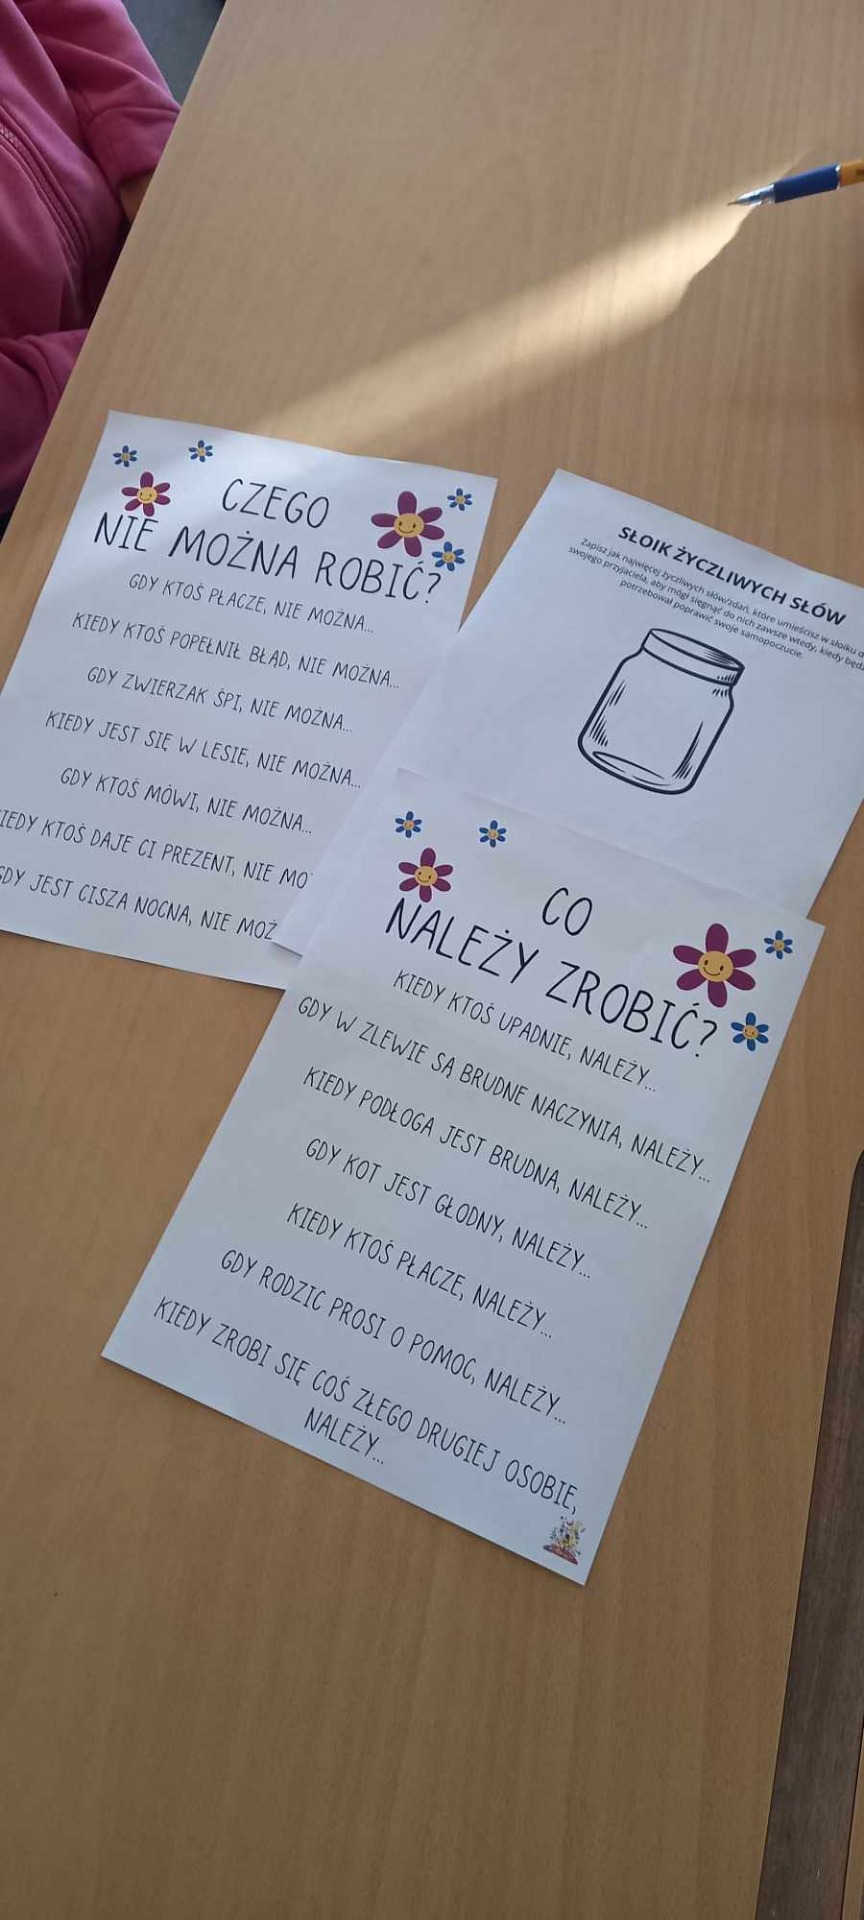 CZEGO
NIE MOŻNA ROBIĆ?
GDY KTOŚ PŁACZE, NIE MOŻNA...
KIEDY KTOŚ POPEŁNIŁ BŁĄD, NIE MOŻNA...
GDY ZWIERZAK ŚPI, NIE MOŻNA...
KIEDY JEST SIĘ W LESIE, NIE MOŻNA...
GDY KTOŚ MÓWI, NIE MOŻNA...
IEDY KTOŚ DAJE CI PREZENT, NIE MO
GDY JEST CISZA NOCNA, NIE MOŻ
SŁOIK ŻYCZLIWYCH SŁÓW
Zapisz jak najwięcej życzliwych słów/zdań, które umieścisz w słoiku d
swojego przyjaciela, aby mógł sięgnąć do nich zawsze wtedy, kiedy będz
potrzebował poprawić swoje samopoczucie.
CO
NALEŻY ZROBIĆ?
KIEDY KTOŚ UPADNIE, NALEŻY...
GDY W ZLEWIE SĄ BRUDNE NACZYNIA, NALEŻY...
KIEDY PODŁOGA JEST BRUDNA, NALEŻY...
GDY KOT JEST GŁODNY, NALEŻY...
KIEDY KTOŚ PŁACZE, NALEŻY...
GDY RODZIC PROSI O POMOC, NALEŻY...
KIEDY ZROBI SIĘ COŚ ZŁEGO DRUGIEJ OSOBIE,
NALEŻY...